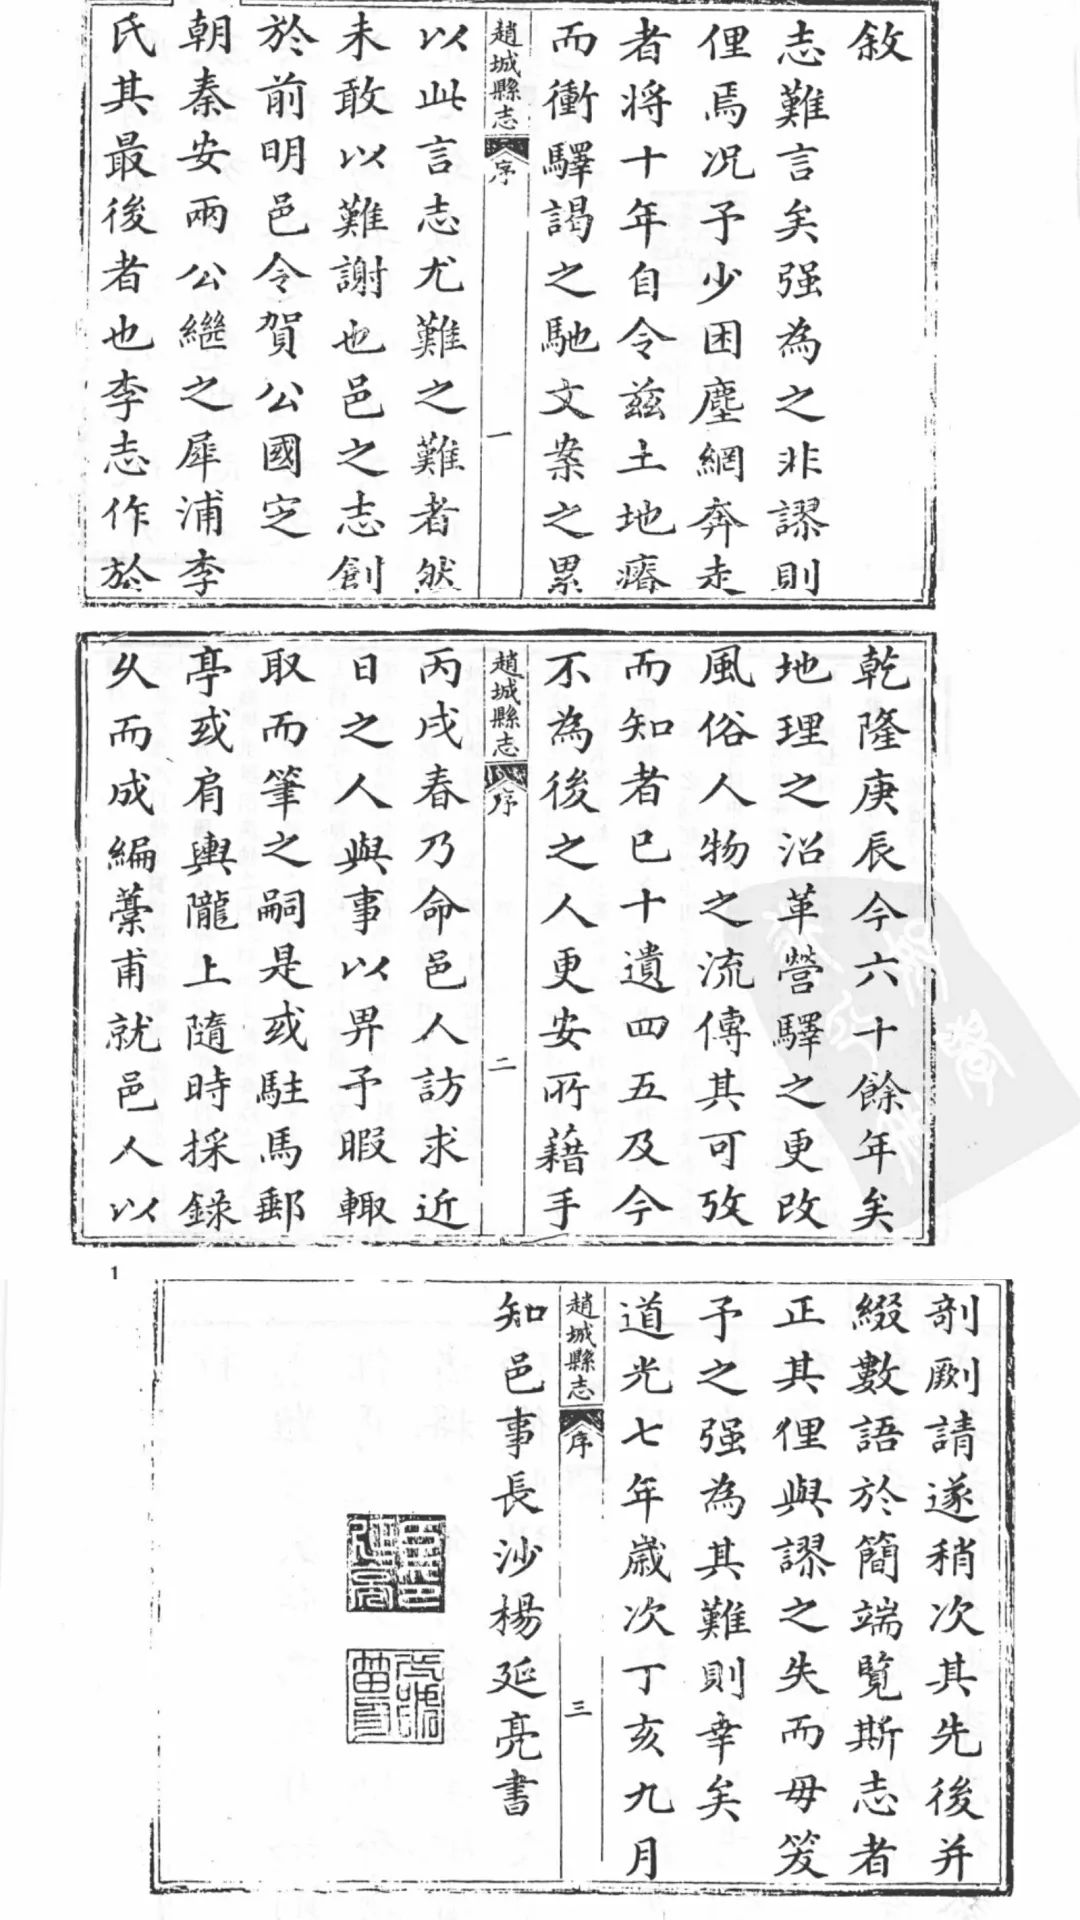 敘
志難言矣强為之非謬則
俚焉况予少困塵網奔走
者将十年自令茲土地瘠
而衝驛謁之馳文案之累
趙城縣志
序
一
以此言志尤難之難者然
未敢以難謝也邑之志創
於前明邑令賀公國定
朝秦安兩公繼之犀浦李
氏其最後者也李志作於
乾隆庚辰今六十餘年矣
地理之沿革營驛之更改
風俗人物之流傳其可攷
而知者已十遺四五及今
不為後之人更安所藉手
趙城縣志
序
二
丙戌春乃命邑人訪求近
日之人與事以畀予暇輙
取而筆之嗣是或駐馬郵
亭或肩輿隴上隨時採錄
久而成編藁甫就邑人以
1
剞劂請遂稍次其先後并
綴數語於簡端覽斯志者
正其俚與謬之失而毋笑
予之强為其難則幸矣
道光七年歲次丁亥九月
趙城縣志
序
三
知邑事長沙楊延亮書